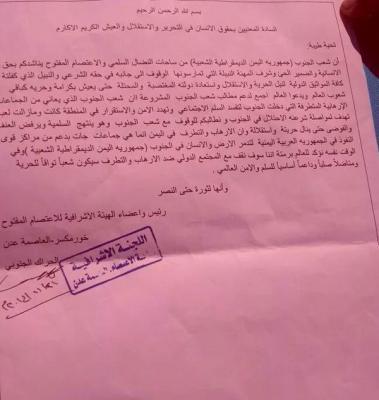 بسم الله الرحمن الرحيم
السادة المعنيين بحقوق الانسان في التحرير والاستقلال والعيش الكريم الاكارم
تحية طيبة
أن شعب الجنوب (جمهوريه اليمن الديمقراطية الشعبية) من ساحات النضال السلمي والاعتصام المفتوح يناشدكم بحق
الانسانية والضمير الحي وشرف المهنة النبيلة التي تمارسونها الوقوف الى جانبه في حقه الشرعي والنبيل الذي كفلتة
كافة المواثيق الدولية لنيل الحرية والاستقلال واستعادة دولته المغتصبة والمحتلة حتى يعيش بكرامة وحريه كباقي
شعوب العالم ويدعوا العالم اجمع لدعم مطالب شعب الجنوب المشروعة ان شعب الجنوب الذي يعاني من الجماعات
الإرهابية المتطرفة التي دخلت الجنوب لتفسد السلم الاجتماعي وتهدد الامن والاستقرار في المنطقة كانت ومازالت لعبة
تهدف لمواصلة شرعنه الاحتلال في الجنوب و نطالبكم للوقوف مع شعب الجنوب وهو ينتهج السلمية ويرفض العنف
والفوضى حتى ينال حريتة واستقلالة وان الارهاب والتطرف في اليمن انما هي جماعات جات بدعم من مراكز قوى
النفوذ في الجمهورية العربية اليمنية لتدمر الارض والانسان في الجنوب (جمهوريه اليمن الديمقراطية الشعبية) وفي
الوقت نفسه نؤكد للعالم برمتة اننا سوف نقف مع المجتمع الدولي ضد الارهاب والتطرف سيكون شعبا تواقاً للحرية
ومناضلاً صلباً وداعماً أساسياً للسلم والامن العالمي .
وأنها لثورة حتى النصر
رئيس واعضاء الهيئة الاشرافية للاعتصام المفتوح
خورمكسر-العاصمة عدن
الحراك الجنوبي
اللجنة الاشرافية